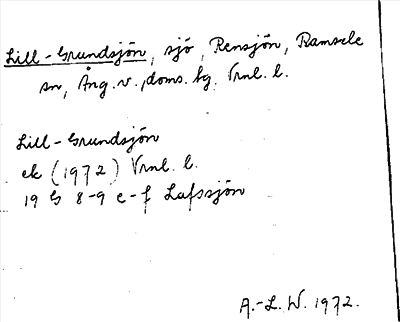 Lill-Grundsjön, sjö, Rensjön, Ramsele
sn, Ång.v., doms.bg. Vrnl. l.
Lill-Grundsjön
ek (1972) Vrnl. l.
19 G 8-9 e-f Lafssjön
A.-L. W. 1972.